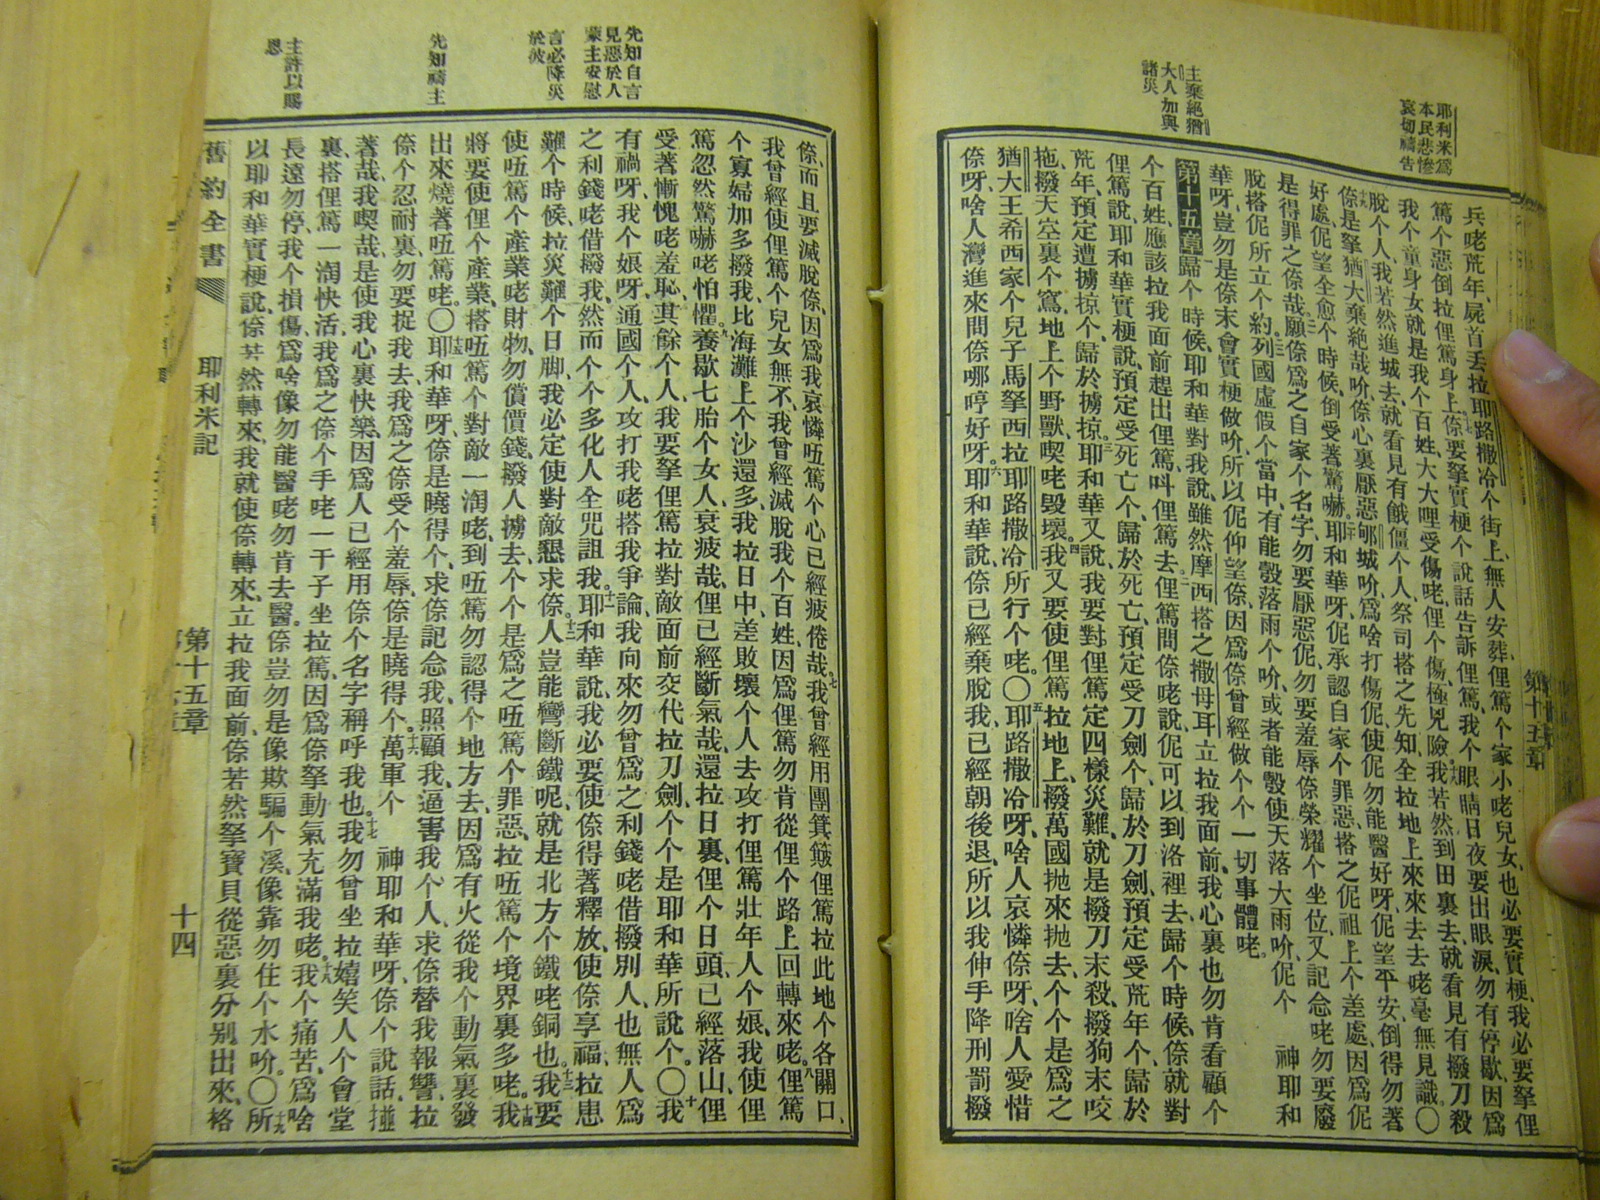 耶利米爲
本民悲慘
哀切禱告
主棄絕猶
大人加與
諸災
第十五章
兵咾荒年、屍首丟拉耶路撒冷个街上、無人安葬俚篤个家小咾兒女、也必要實梗、我必要拏俚
篤个惡倒拉俚篤身上、㑚要拏實梗个說話告訴俚篤、我个眼睛日夜要出眼淚、勿有停歇、因爲
我个童身女就是我个百姓、大大哩受傷咾、俚个傷、極兇險。我若然到田裏去、就看見有撥刀殺
脫个人、我若然進城去、就看見有餓僵个人、祭司搭之先知、全拉地上來來去去咾毫無見識〇
㑚是拏猶大棄絕哉吤、㑚心裏厭惡郇城吤、爲啥打傷伲、使伲勿能醫好呀、伲望平安、倒得勿著
好處、伲望全愈个時候、倒受著驚嚇。耶和華呀、伲承認自家个罪惡、搭之伲祖上个差處、因爲伲
是得罪之㑚哉。願㑚爲之自家个名字勿要厭惡伲、勿要羞辱㑚榮耀个坐位、又記念咾勿要廢
脫搭伲所立个約。列國虛假个當中、有能彀落雨个吤、或者能彀使天落大雨吤、伲个 神耶和
華呀、豈勿是㑚末會實梗做吤、所以伲仰望㑚、因爲㑚曾經做个个一切事體咾。
第十五章 歸个時候、耶和華對我說、雖然摩西搭之撒母耳立拉我面前、我心裏也勿肯看顧个
个百姓、應該拉我面前趕出俚篤、叫俚篤去。俚篤問㑚咾說、伲可以到洛裡去、歸个時候、㑚就對
俚篤說、耶和華實梗說、預定受死亡个、歸於死亡、預定受刀劍个、歸於刀劍、預定受荒年个、歸於
荒年、預定遭擄掠个、歸於擄掠。耶和華又說、我要對俚篤定四樣災難、就是撥刀末殺、撥狗末咬
拖、撥天空裏个窵、地上个野獸、喫咾毀壞。我又要使俚篤拉地上、撥萬國抛來抛去、个个是爲之
猶大王希西家个兒子馬拏西、拉耶路撒冷所行个咾。〇耶路撒冷呀、啥人哀憐㑚呀、啥人愛惜
㑚呀、啥人灣進來問㑚哪哼好呀。耶和華說、㑚已經棄脫我、已經朝後退、所以我伸手降刑罰撥
先知自言
見惡於人
蒙主安慰
言必降災
於彼
先知禱主
主許以賜
恩
㑚、而且要滅脫㑚、因爲我哀憐㕶篤个心已經疲倦哉。我曾經用團箕簸俚篤拉此地个各關口、
我曾經使俚篤个兒女無不、我曾經滅脫我个百姓、因爲俚篤勿肯從俚个路上回轉來咾。俚篤
个寡婦加多撥我、比海灘上个沙還多、我拉日中、差敗壞个人去攻打俚篤壯年人个娘、我使俚
篤忽然驚嚇咾怕懼。養歇七胎个女人、衰疲哉、俚已經斷氣哉、還拉日裏、俚个日頭、已經落山、俚
受著慚愧咾羞恥、其餘个人、我要拏俚篤拉對敵面前交代拉刀劍、个个是耶和華所說个。〇我
有禍呀、我个娘呀、通國个人、攻打我咾搭我爭論、我向來勿曾爲之利錢咾借撥別人、也無人爲
之利錢咾借撥我、然而个个多化人全咒詛我。耶和華說、我必要使㑚得著釋放、使㑚享福、拉患
難个時候、拉災難个日脚、我必定使對敵懇求㑚。人豈能彎斷鐵呢、就是北方个鐵咾銅也。我要
使㕶篤个產業咾財物、勿償價錢、撥人擄去、个个是爲之㕶篤个罪惡、拉㕶篤个境界裏多咾。我
將要使俚个產業、搭㕶篤个對敵一潤咾、到㕶篤勿認得个地方去、因爲有火從我个動氣裏發
出來燒著㕶篤咾。〇耶和華呀、㑚是曉得个、求㑚記念我、照顧我、逼害我个人、求㑚替我報讐、拉
㑚个忍耐裏、勿要捉我去、我爲之㑚受个羞辱、㑚是曉得个。萬軍个 神耶和華呀、㑚个說話、搿
著哉、我喫哉、是使我心裏快樂、因爲人已經用㑚个名字稱呼我也。我勿曾坐拉嬉笑人个會堂
裏、搭俚篤一潤快活、我爲之㑚个手咾一干子坐拉篤、因爲㑚拏動氣充滿我咾。我个痛苦、爲啥
長遠勿停、我个損傷、爲啥像勿能醫咾勿肯去醫。㑚豈勿是像欺騙个溪、像靠勿住个水吤。〇所
以耶和華實梗說、㑚若然轉來、我就使㑚轉來、立拉我面前、㑚若然拏寶貝從惡裏分別出來、格
舊約全書
耶利米記
第十五章
十四